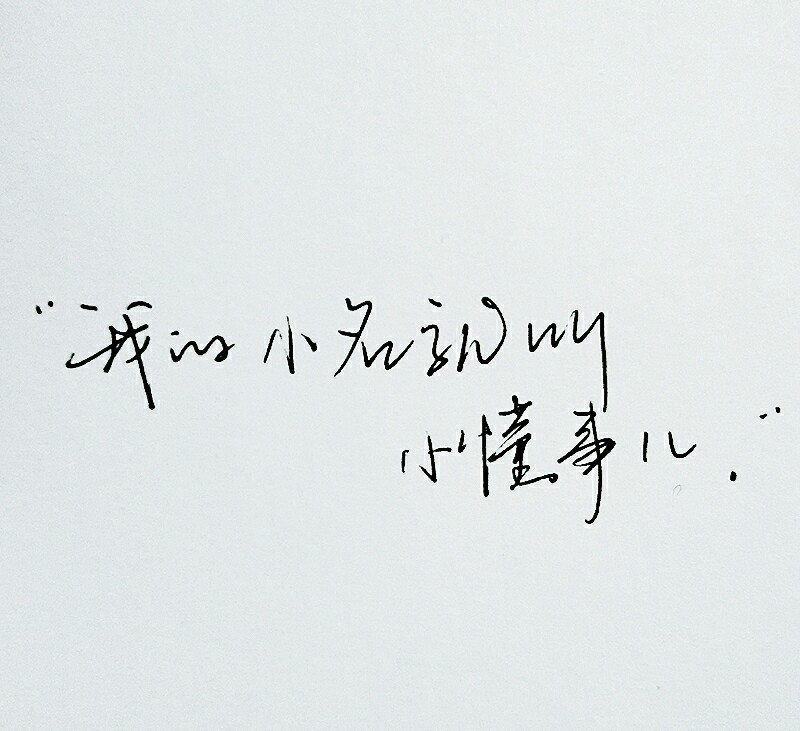 “我的小名就叫
小懂事儿.”